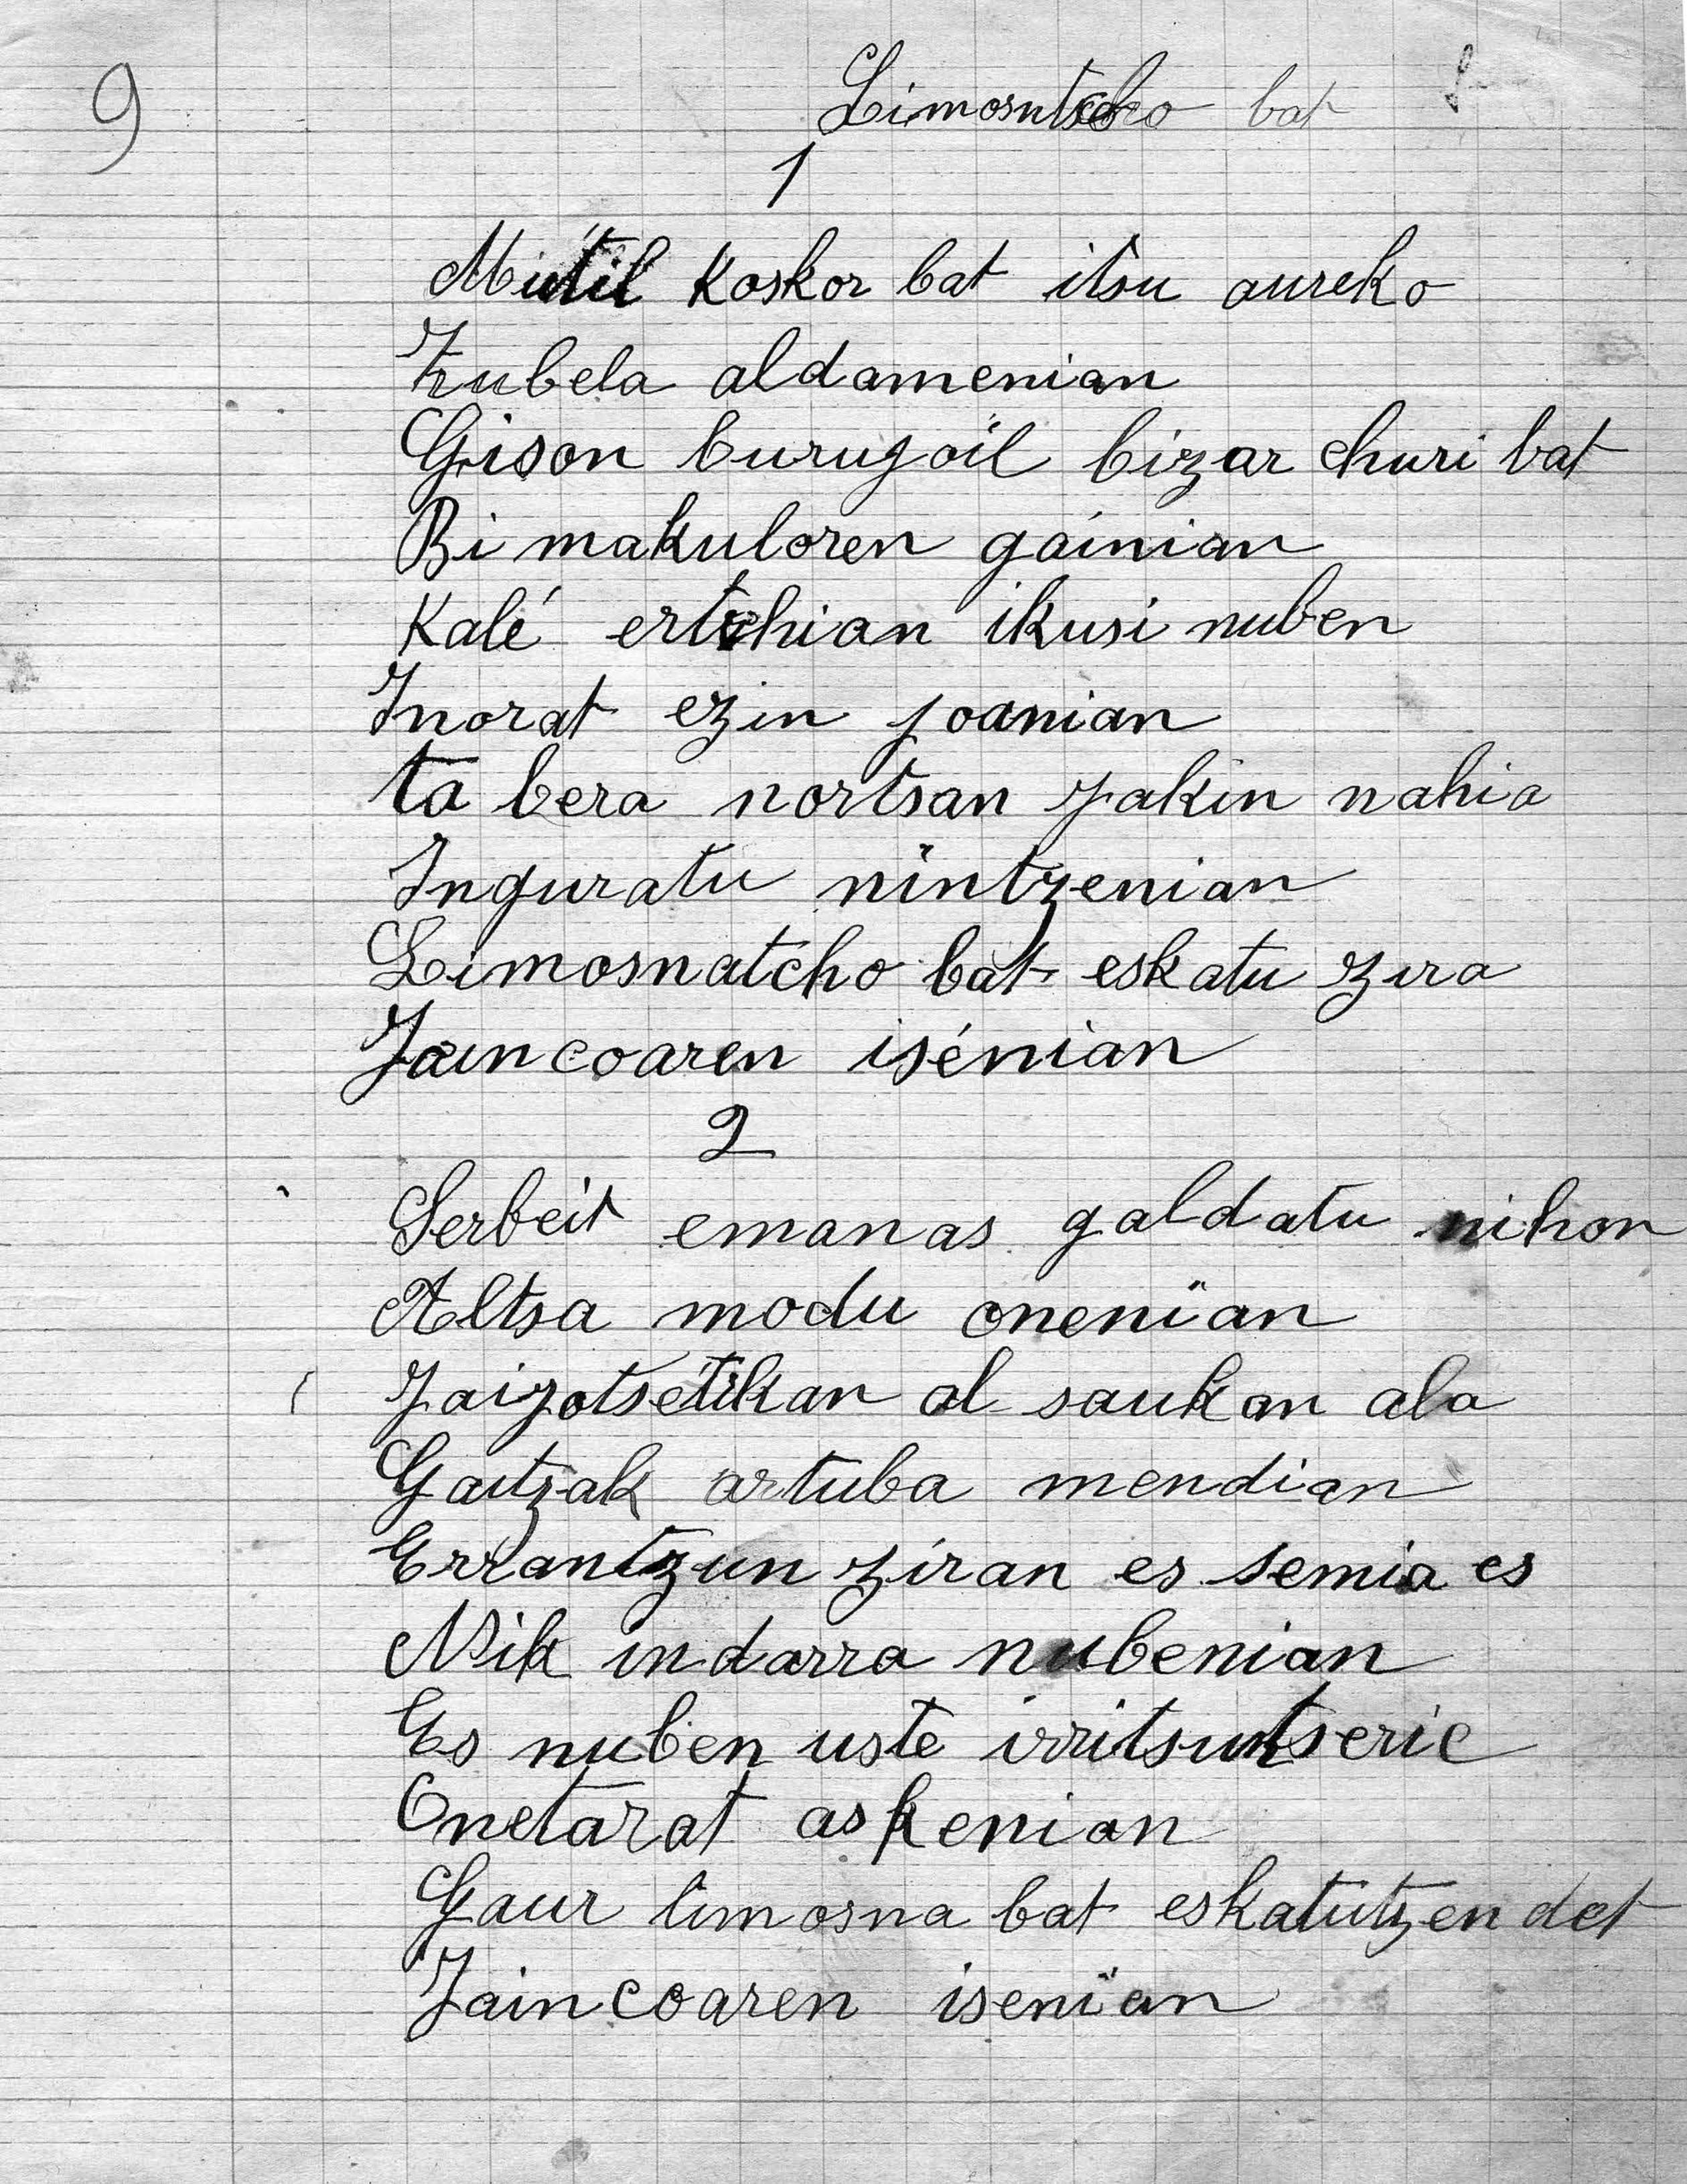 9
Limosntcho bat
1
Mutil Koskor bat itsu aureko
Zubela aldamenian
Gison burugoil bizar churi bat
Bi makuloren gáinian
Kalé ertchian ikusi nuben
Inorat ezin joanian
ta bera nortsan zakin nahia
Inguratu nintzenian
Limosnatcho bat eskatu zira
Jaincoaren isénian
2
Serbeit emanas galdatu nihon
Altsa modu onenian
Jaizotsetikan al saukan ala
Gaitzak artuba mendian
Errantzun ziran es semia es
Nik indarra nubenian
Es nuben uste irritsuntseric
Onetarat askenian
Gaur limosna bat eskatutzen det
Jaincoaren isenian